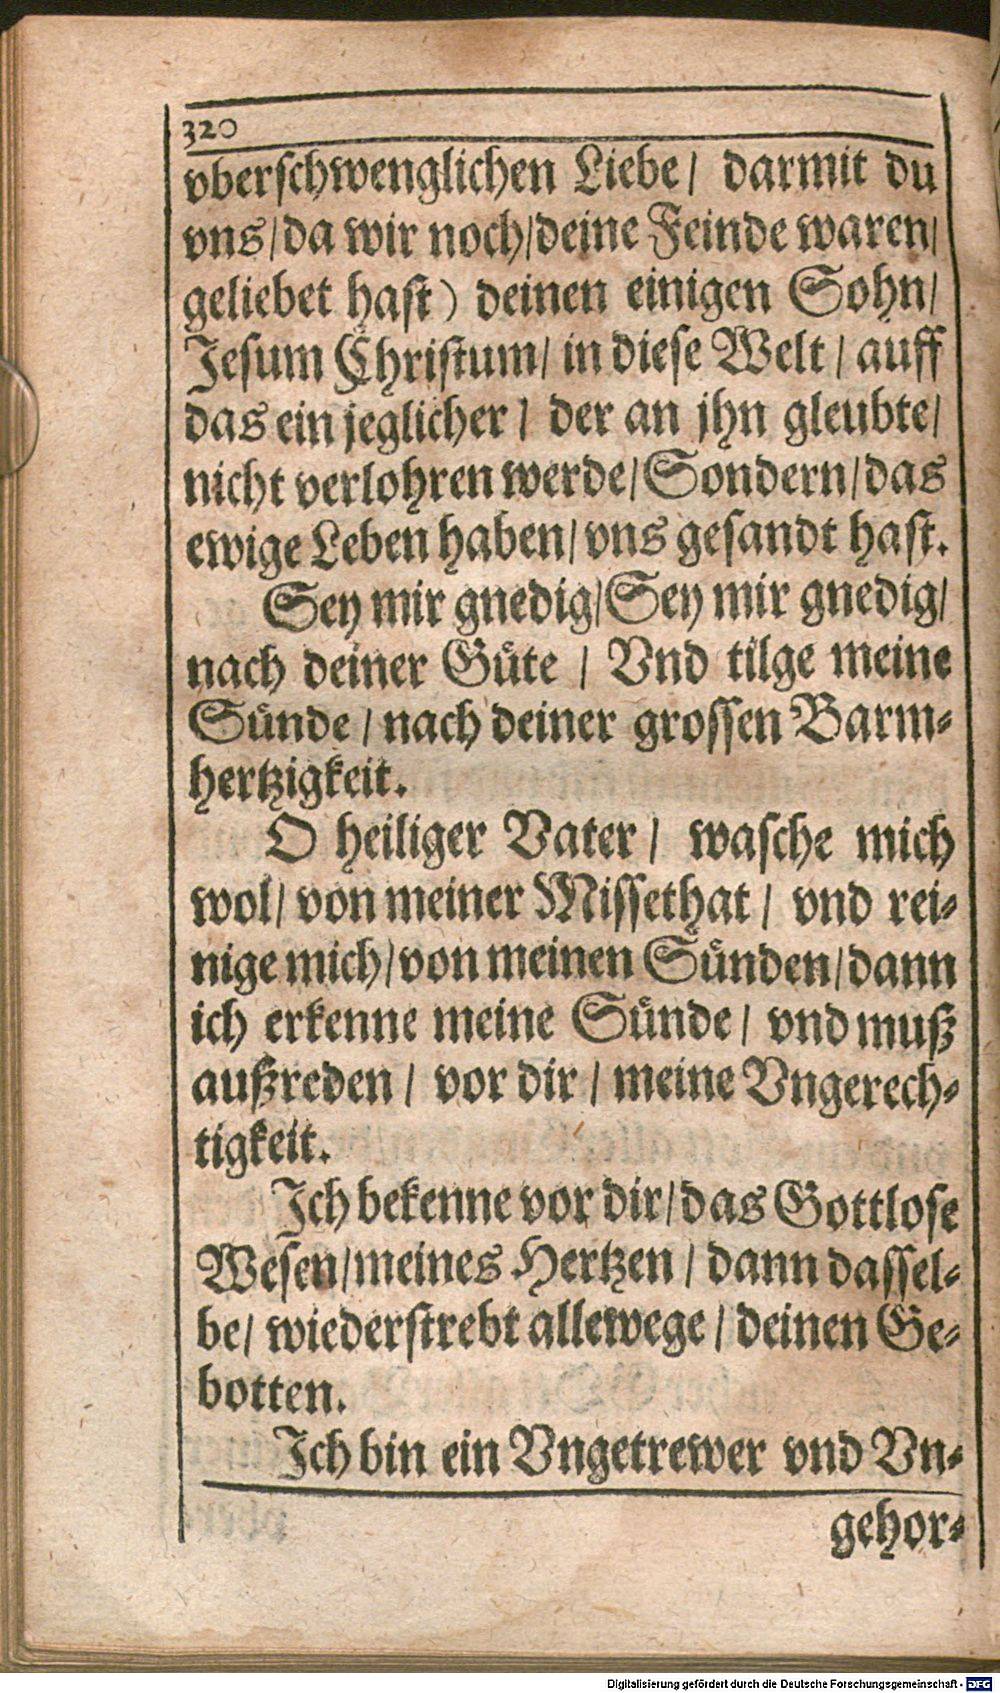 320
vberschwenglichen Liebe/ darmit du
vns/da wir noch/deine Feinde waren/
geliebet hast) deinen einigen Sohn/
Jesum Christum/ in diese Welt/ auff
das ein jeglicher/ der an jhn gleubte/
nicht verlohren werde/Sondern/das
ewige Leben haben/vns gesandt hast.
Sey mir gnedig/Sey mir gnedig/
nach deiner Gůte / Vnd tilge meine
Sůnde / nach deiner grossen Barm-
hertzigkeit.
O heiliger Vater/ wasche mich
wol/ von meiner Missethat/ vnd rei-
nige mich/von meinen Sůnden/dann
ich erkenne meine Sůnde/ vnd muß
außreden/ vor dir/ meine Vngerech-
tigkeit.
Ich bekenne vor dir/das Gottlose
Wesen/meines Hertzen/ dann dassel-
be/ wiederstrebt allewege/ deinen Ge-
botten.
Ich bin ein Vngetrewer vnd Vn-
gehor-
Digitalisierung gefördert durch die Deutsche Forschungsgemeinschaft - DFG